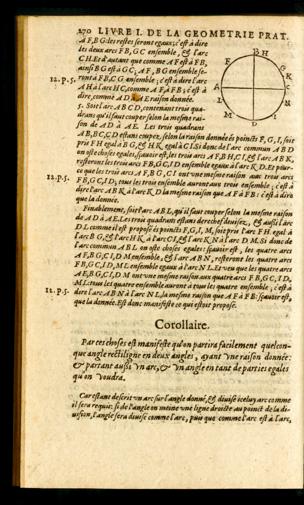 270 LIVRE I. DE LA GEOMETRIE PRAT.
à F, B G les restes seront egaux; c'est à dire
les deux arcs F B, G C ensemble, & l'arc
C H. Et d'autant que comme A F est à F B,
ainsi B G est à G C; A F, B G ensemble se-
12. p. 5. ront à F B, C G ensemble; c'est à dire l'arc
A H à l'arc H C, comme A F à F B; c'est à
dire, comme A D à A E raison donnée.
5. Soit l'arc A B C D, contenant trois qua-
drans qu'il faut couper selon la mesme rai-
son de A D à A E. Les trois quadrans
A B, B C, C D estans coupez, selon la raison donnée és poincts F, G, I, soit
pris F H egal à B G, & H K egal à C I. Si donc de l'arc commun A B D
on oste choses egales, sçavoir est, les trois arcs A F, B H, C I, & l'arc A B K,
resteront les trois arcs F B, G C, I D ensemble egaux à l'arc K D. Et pour-
ce que les trois arcs A F, B G, C I ont une mesme raison aux trois arcs
12. p. 5. F B, G C, I D, tous les trois ensemble auront aux trois ensemble; c'est à
dire l'arc A B K à l'arc K D la mesme raison que A F à F B: c'est à dire
que la donnée.
Finablement, soit l'arc A B L, qu'il faut couper selon la mesme raison
de A D à A E. Les trois quadrans estans derechef divisez, & aussi l'arc
D L comme il est proposé és poincts F, G, I, M, soit pris l'arc F H egal à
l'arc B G, & l'arc H K à l'arc C I, & l'arc K N à l'arc D M. Si donc de
l'arc commun A B L on oste choses egales: sçavoir est, les quatre arcs
A F, B G, C I, D M ensemble, & l'arc A B N, resteront les quatre arcs
F B, G C, I D, M L ensemble egaux à l'arc N L. Et veu que les quatre arcs
A F, B G, C I, D M ont une mesme raison aux quatre arcs F B, G C, I D,
M L: tous les quatre ensemble auront à tous les quatre ensemble; c'est à
12. p. 5. dire l'arc A B N à l'arc N L, la mesme raison que A F à F B: sçavoir est,
que la donnée. Est donc manifeste ce qui estoit proposé.
Corollaire.
Par ces choses est manifeste qu'on partira facilement quelcon-
que angle rectiligne en deux angles, ayant une raison donnée:
& partant aussi un arc, & un angle en tant de parties egales
qu'on voudra.
Car estant descrit un arc sur l'angle donné, & divisé iceluy arc comme
il sera requis: si de l'angle on meine une ligne droicte au poinct de la di-
vision, l'angle sera divisé comme l'arc, puis que comme l'arc est à l'arc,